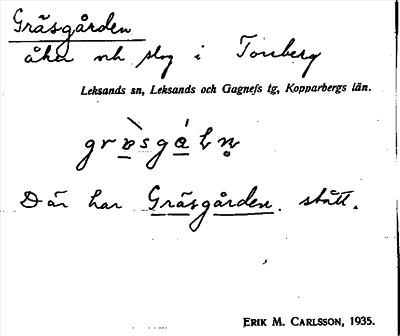 Gräsgården
åker och slog i Tonberg
Leksands sn, Leksands och Gagnefs tg, Kopparbergs län.
Där har Gräsgården stått.
ERIK M. CARLSSON, 1935.